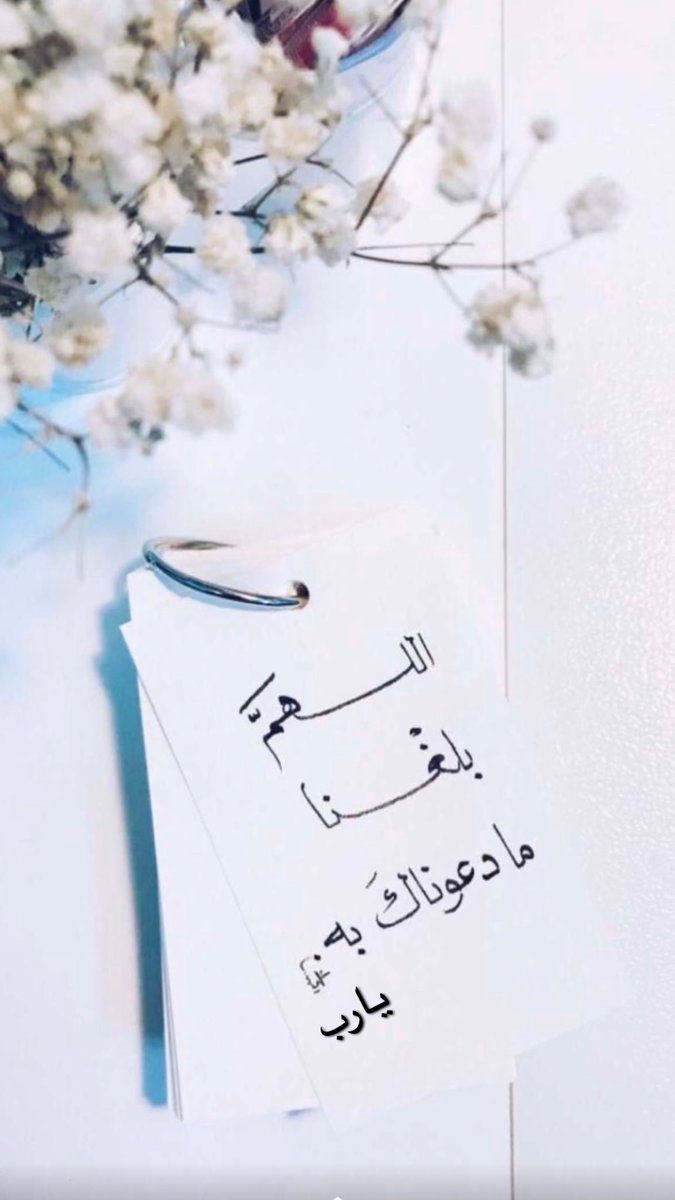 اللهمَّ
بلغْنا
ما دعوناكَ به.
يارب